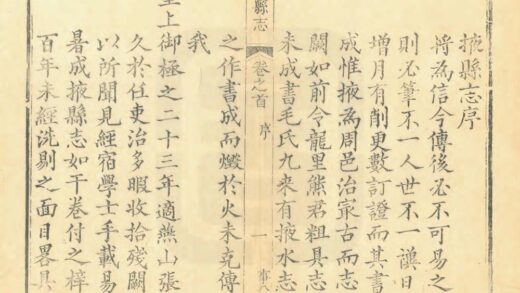 掖縣志序
將為信今傳後必不可易之
則必筆不一人世不一日
增月有削更數訂證而其書
成惟掖為周邑治冣古而志
闕如前令龍里熊君粗具志
未成書毛氏九來有掖水志
之作書成而燬於火未克傳
縣志
卷之首
序
一
我
皇上御極之二十三年適燕山張
久於任吏治多暇收拾殘闕
以所聞見經宿學士手載易
暑成掖縣志如干卷付之梓
百年未經洗剔之面目畧具